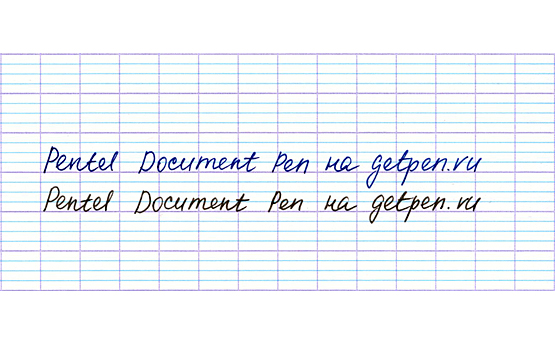 Pentel Document Pen на getpen.ru
Pentel Document Pen на getpen.ru